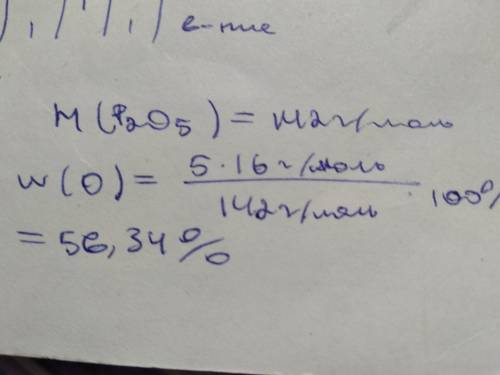 M(P₂O₅) = 142 г/моль
w(O) = 5·16 г/моль / 142 г/моль · 100%
= 56,34%